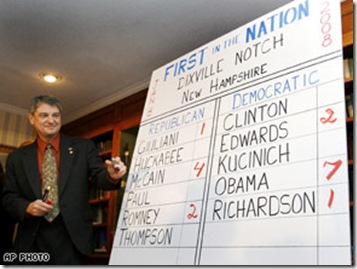 FIRST IN THE NATION
DIXVILLE NOTCH
NEW HAMPSHIRE
2008
REPUBLICAN
GIULIANI 1
HUCKABEE
McCAIN 4
PAUL
ROMNEY 2
THOMPSON
DEMOCRATIC
CLINTON
EDWARDS 2
KUCINICH
OBAMA 7
RICHARDSON 1
AP PHOTO